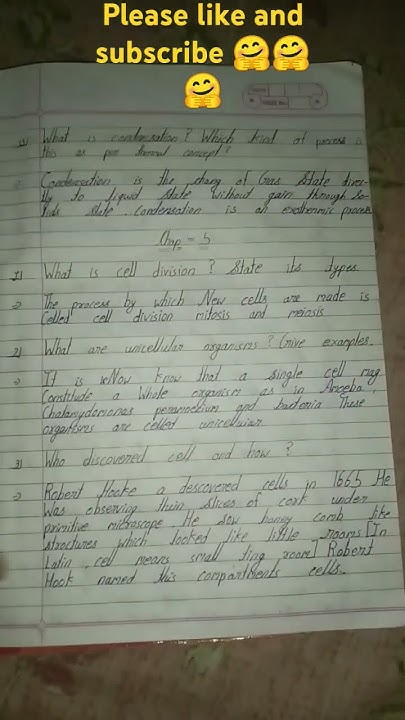 Please like and
subscribe 🤗🤗
🤗
What is condensation? Which kind of process is
this as per thermal concept?
Condensation is the chang of Gas State direc-
tly to liquid state without gain through So-
lids state. condensation is an exothermic process
Chap = 5
1) What is cell division? State its types.
The process by which New cells are made is
Celled cell division mitosis and meiosis
2) What are unicellular organisms? Give examples.
It is wNow know that a single cell may
Constitude a Whole organism as in Amoeba,
Chalamydomonas peramoecium and bacteria These
organisms are celled unicellular.
3) Who discovered cell and how?
Robert Hooke a descovered cells in 1665 He
was observing thin slices of cork under
primitive microscope. He sow honey comb like
structures which looked like little rooms [In
Latin, cell means small ting room] Robert
Hook named this compartments cells.